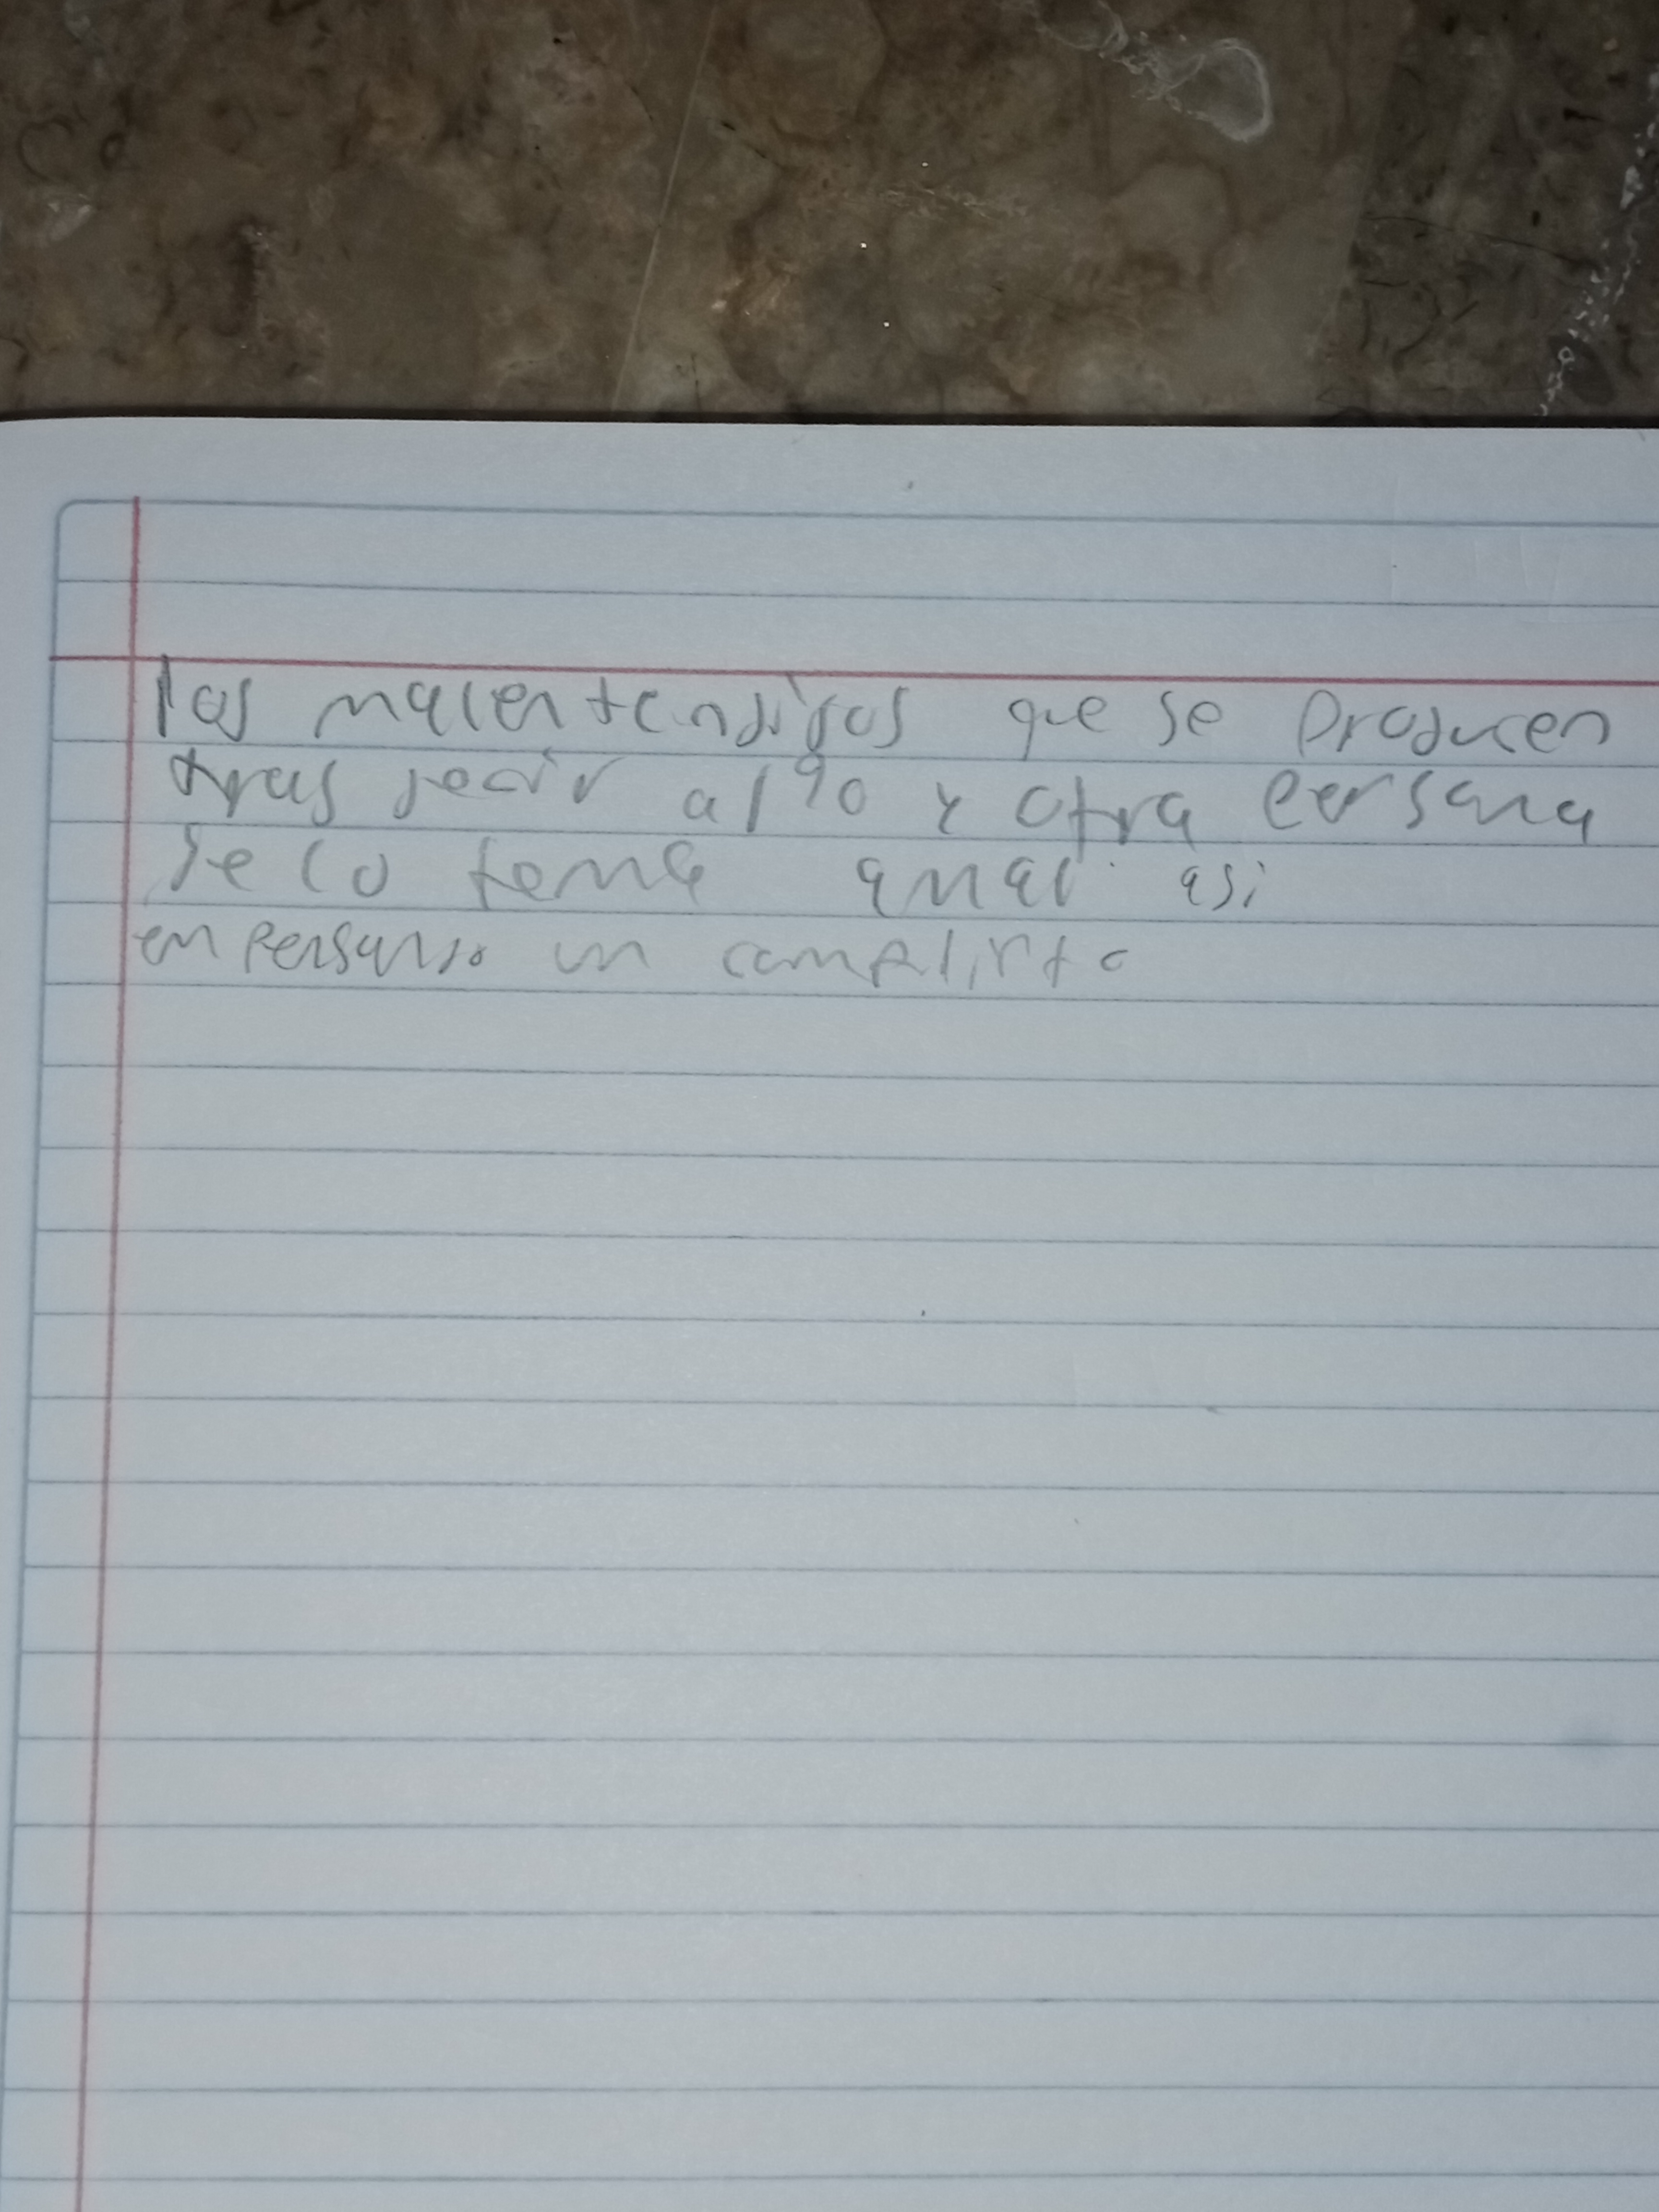 los malentendidos que se producen
tras decir algo y otra persona
se lo toma a mal asi
empensando un complirto